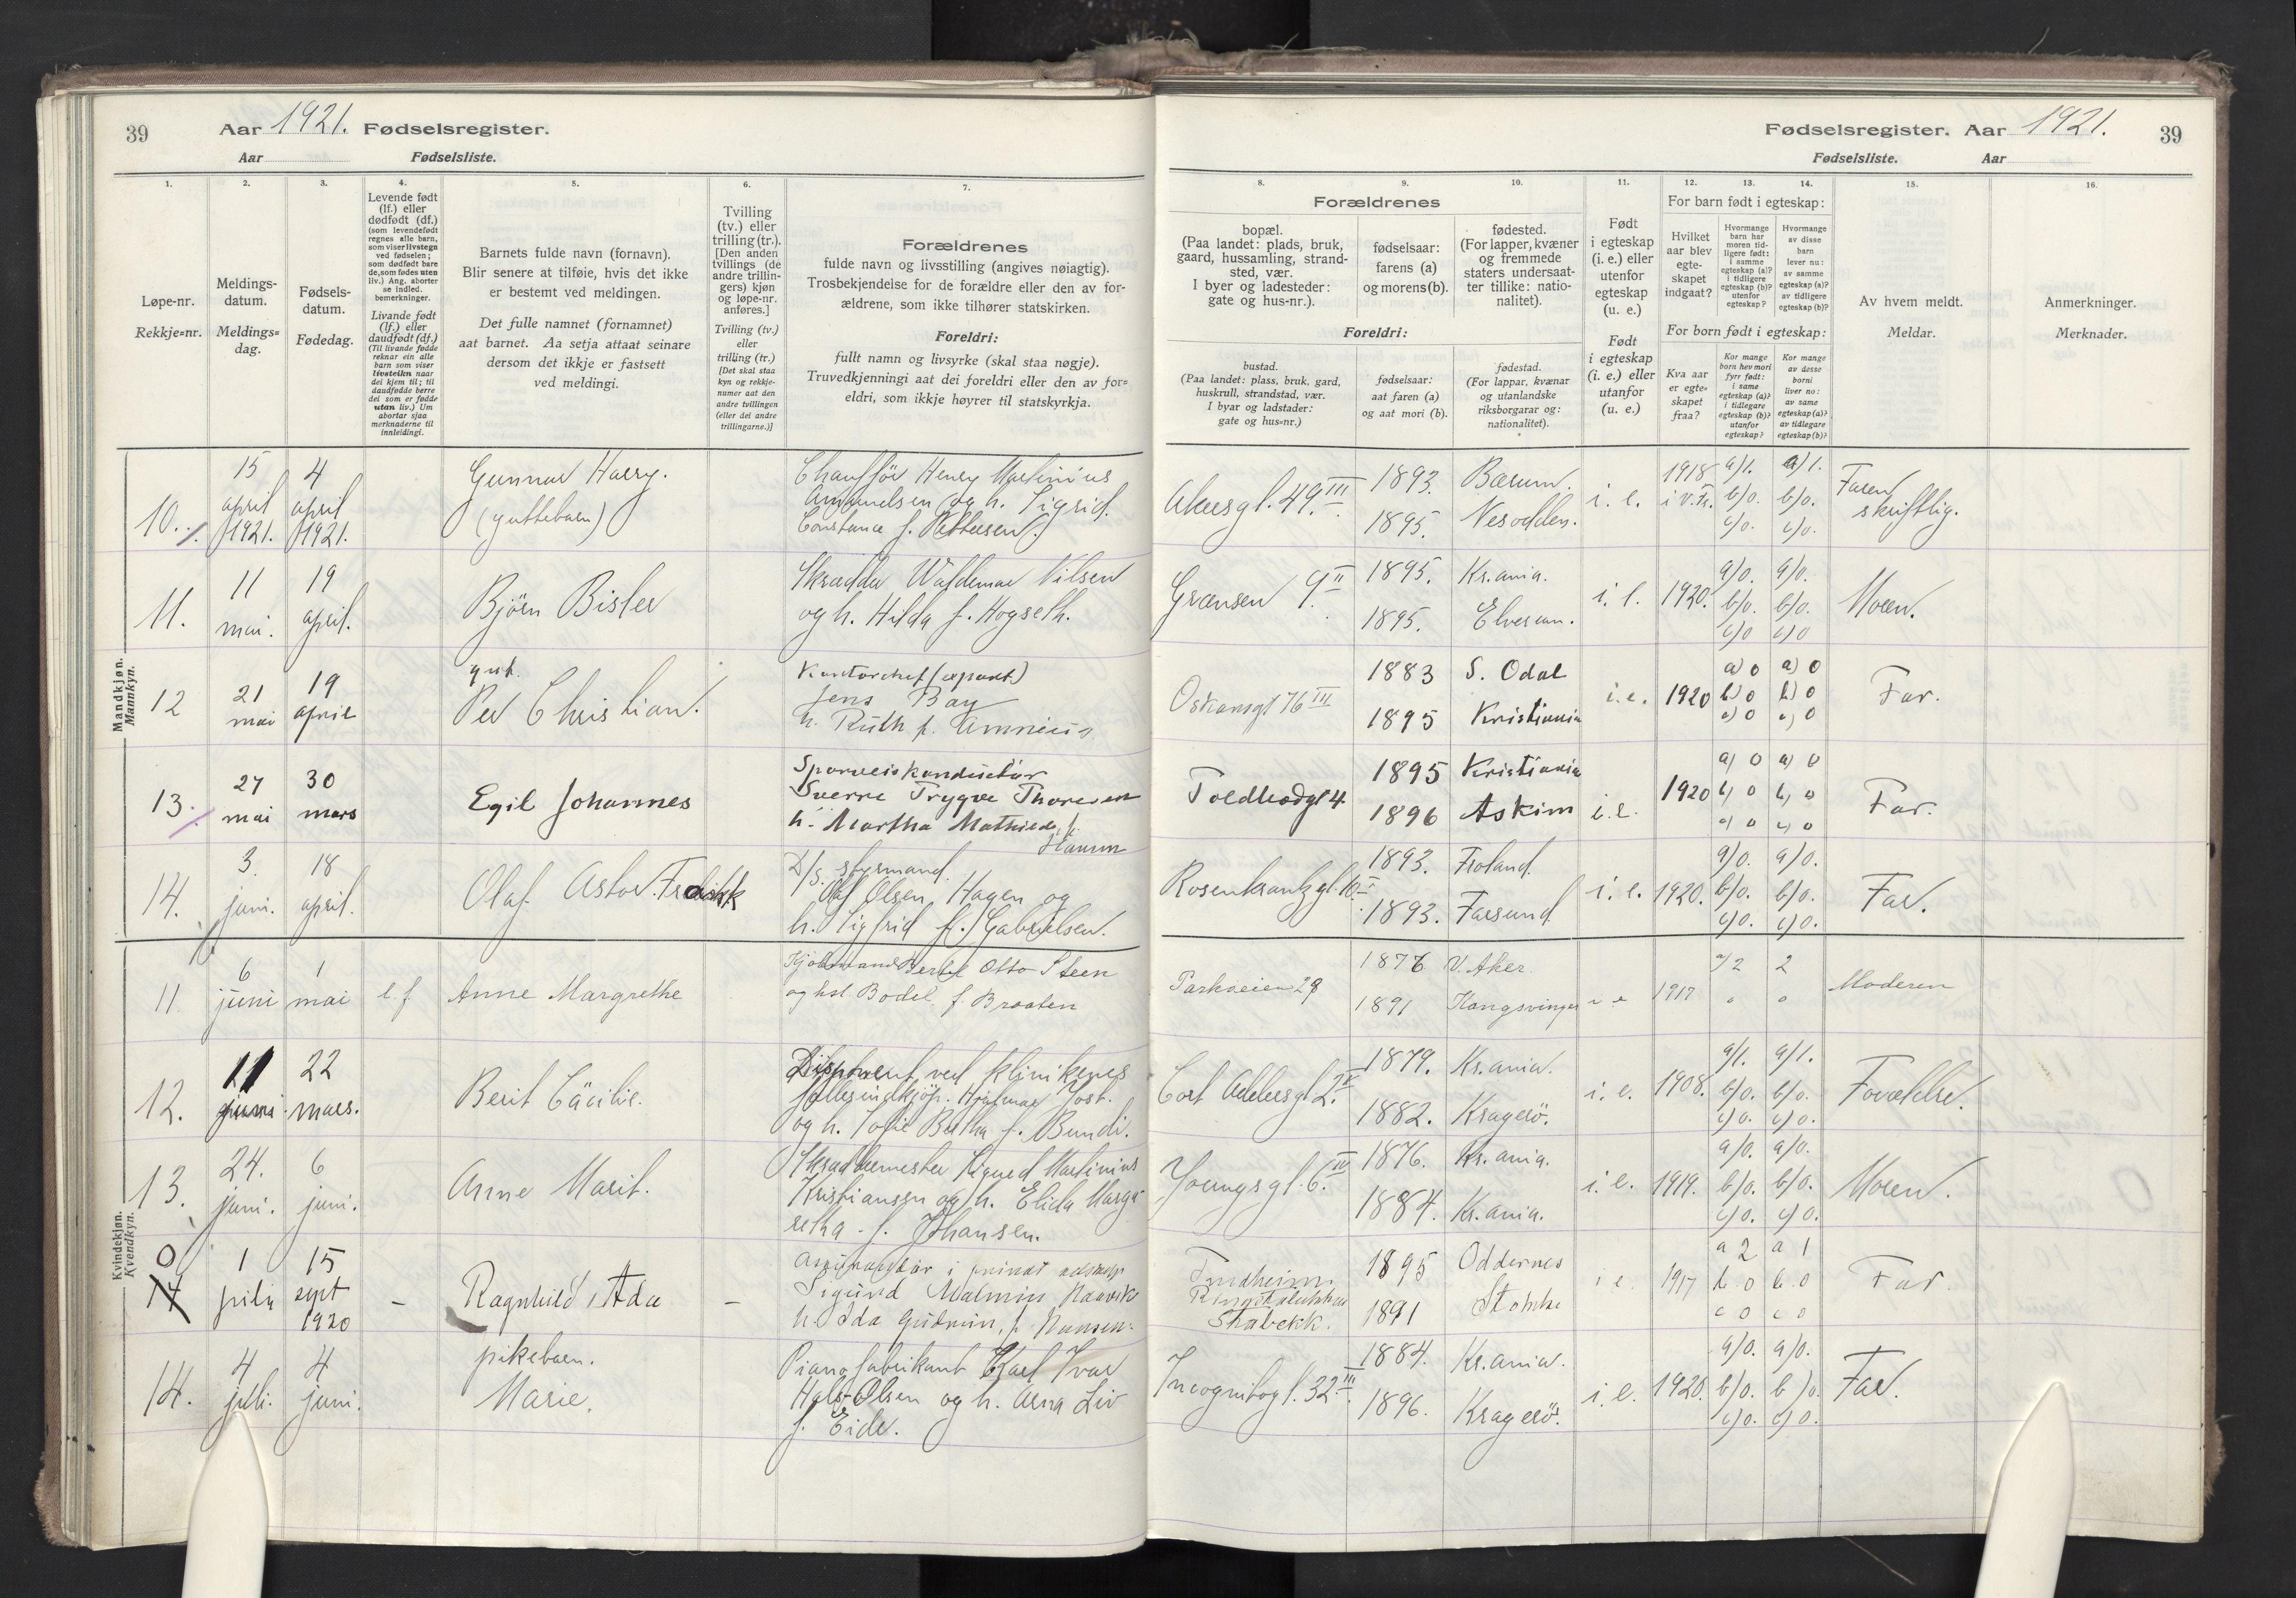 39 Aar 1921. Fødselsregister.
Aar Fødselsliste.
Fødselsregister. Aar 1921. 39
Fødselsliste. Aar
1. 2. 3. 4. 5. 6. 7.
Løpe-nr.
Rekkje=nr.
Meldings-
datum.
Meldings=
dag.
Fødsels-
datum.
Fødedag.
Levende født
(lf.) eller
dødfødt (df.)
(som levendefødt
regnes alle barn,
som viser livstegn
ved fødselen;
som dødfødt bare
de, som fødes uten
liv.) Ang. aborter
se indled.
bemerkninger.
Livande født
(lf.) eller
daudfødt (df.)
(Til livande fødde
reknar ein alle
barn som viser
livsteikn naar
dei kjem til; til
daudfødde berre
dei som er fødde
utan liv.) Um
abortar sjaa
merknaderne til
innleidingi.
Barnets fulde navn (fornavn).
Blir senere at tilføie, hvis det ikke
er bestemt ved meldingen.
Det fulle namnet (fornamnet)
aat barnet. Aa setja attaat seinare
dersom det ikkje er fastsett
ved meldingi.
Tvilling
(tv.) eller
trilling (tr.).
[Den anden
tvillings (de
andre trillin-
gers) kjøn
og løpe-nr.
anføres.]
Tvilling (tv.)
eller
trilling (tr.)
[Det skal staa
kyn og rekkje-
numer aat den
andre tvillingen
(eller dei andre
trillingarne.)]
Forældrenes
fulde navn og livsstilling (angives nøiagtig).
Trosbekjendelse for de forældre eller den av for-
ældrene, som ikke tilhører statskirken.
Foreldri:
fullt namn og livsyrke (skal staa nøgje).
Truvedkjenningi aat dei foreldri eller den av for=
eldri, som ikkje høyrer til statskyrkja.
8. 9. 10. 11. 12. 13. 14. 15. 16.
Forældrenes
bopæl.
(Paa landet: plads, bruk,
gaard, hussamling, strand-
sted, vær.
I byer og ladesteder:
gate og hus-nr.).
fødselsaar:
farens (a)
og morens (b).
fødested.
(For lapper, kvæner
og fremmede
staters undersaat-
ter tillike: natio-
nalitet).
Foreldri:
bustad.
(Paa landet: plass, bruk, gard,
huskrull, strandstad, vær.
I byar og ladstader:
gate og hus=nr.)
fødselsaar:
aat faren (a)
og aat mori (b).
fødestad.
(For lappar, kvænar
og utanlandske
riksborgarar og:
nationalitet).
Født
i egteskap
(i. e.) eller
utenfor
egteskap
(u. e.)
Født
i egteskap
(i. e.) eller
utanfor
(u. e.)
For barn født i egteskap:
Hvilket
aar blev
egte-
skapet
indgaat?
Hvormange
barn har
moren tid-
ligere født:
i samme
egteskap (a)?
i tidligere
egteskap (b)?
utenfor
egteskap?
Hvormange
av disse
barn
lever nu:
av samme
egteskap (a)?
av tidligere
egteskap (b)?
For born født i egteskap:
Kva aar
er egte=
skapet
fraa?
Kor mange
born hev mori
fyrr født:
i same
egteskap (a)?
i tidlegare
egteskap (b)?
utanfor
egteskap?
Kor mange
av desse
borni
liver no:
av same
egteskap (a)?
av tidlegare
egteskap (b)?
Av hvem meldt.
Meldar.
Anmerkninger.
Merknader.
Mandkjøn.
Mannkyn.
10. 15 april 1921. 4 april 1921. Gunnar Harry. (guttebarn)
Chauffør Henry Martinius
Amundsen og h. Sigrid
Constance f. Pettersen.
Akersgt. 49 III. 1893. 1895. Bærum. Nesodden. i. e. 1918 i V. Fr. a/1. b/o. c/o. a/1. b/o. c/o. Faren skriftlig.
11. 11 mai. 19 april. Bjørn Bisler
Skrædder Waldemar Nilsen
og h. Hilda f. Hogseth.
Grænsen 9 II. 1895. 1895. Kr.ania. Elverum. i. e. 1920. a/o. b/o. c/o a/o. b/o. c/o Moren.
12 21 mai 19 april gut. Per Christian.
Kontorchef (export)
Jens Bay
h. Ruth f. Amnéus
Oskarsgt 76 III 1883 1895 S. Odal Kristiania i.e. 1920 a) o b) o c) o a) o b) o c) o Far.
13. 27 mai 30 mars Egil Johannes
Sporveiskonduktør
Sverre Trygve Thoresen
h. Martha Mathilde f.
Hansen
Toldbodgt 4. 1895 1896 Kristiania Askim i.e. 1920 a) o b) o c) o a) o b) o c) o Far.
14. 3. juni. 18 april. Olaf Astor. Fredrikk
D/S. styrmand.
Olaf Olsen Hagen og
h. Sigfrid f. Gabrielsen.
Rosenkrantzgt. 10 I. 1893. 1893. Froland. Farsund. i. e. 1920. a/o. b/o. c/o. a/o. b/o. c/o. Far.
Kvindekjøn.
Kvendkyn.
11 6 juni 1 mai l.f Anne Margrethe
Otto Steen
og hst. Bodel f. Braaten
Parkveien 29 1876 1891 V. Aker. Kongsvinger i e 1917 a/2 o 2 o Moderen
12. 11 juni. 22 mars. Berit Cäcilie.
Disponent ved klinikenes
fællesindkjøp. Hjalmar Jost.
og h. Sofie Bertha f. Bundi.
Cort Adelersgt 2 IV. 1879. 1882. Kr.ania. Kragerö. i. e. 1908. a/1. b/o. c/o. a/1. b/o. c/o. Forældre.
13. 24. juni. 6 juni. Anne Marit.
Skræddermester Sigurd Martinius
Kristiansen og h. Elida Marga
retha f. Johansen.
Youngsgt. 6 IV. 1876. 1884. Kr.ania. Kr.ania. i. e. 1919. a/o. b/o. c/o. a/o. b/o. c/o. Moren.
0 14 1 juli 15 sept 1920 – Ragnhild, Ada –
i privat
Sigurd Malmin
h. Ida Gudrun, f. Hansen.
Stabekk. 1895 1891 Oddernes i e 1917 a 2 b. o c o a 1 b. o c o Far.
14. 4 juli. 4 juni. pikebarn. Marie.
Pianofabrikant Karl Ivar
Hals-Olsen og h. Arna Liv
f. Eide.
Incognitogt. 32 III. 1884. 1896. Kr.ania. Kragerö. i. e. 1920. a/o. b/o. c/o. a/o. b/o. c/o. Far.